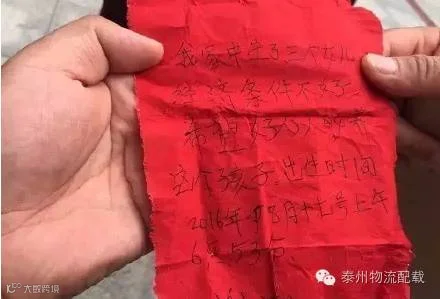 我家中生了三个女儿
经济条件不好
希望好心人收养
这个孩子.出生时间
2016年8月十七号上午
6点53分
大数跨境
泰州物流配载